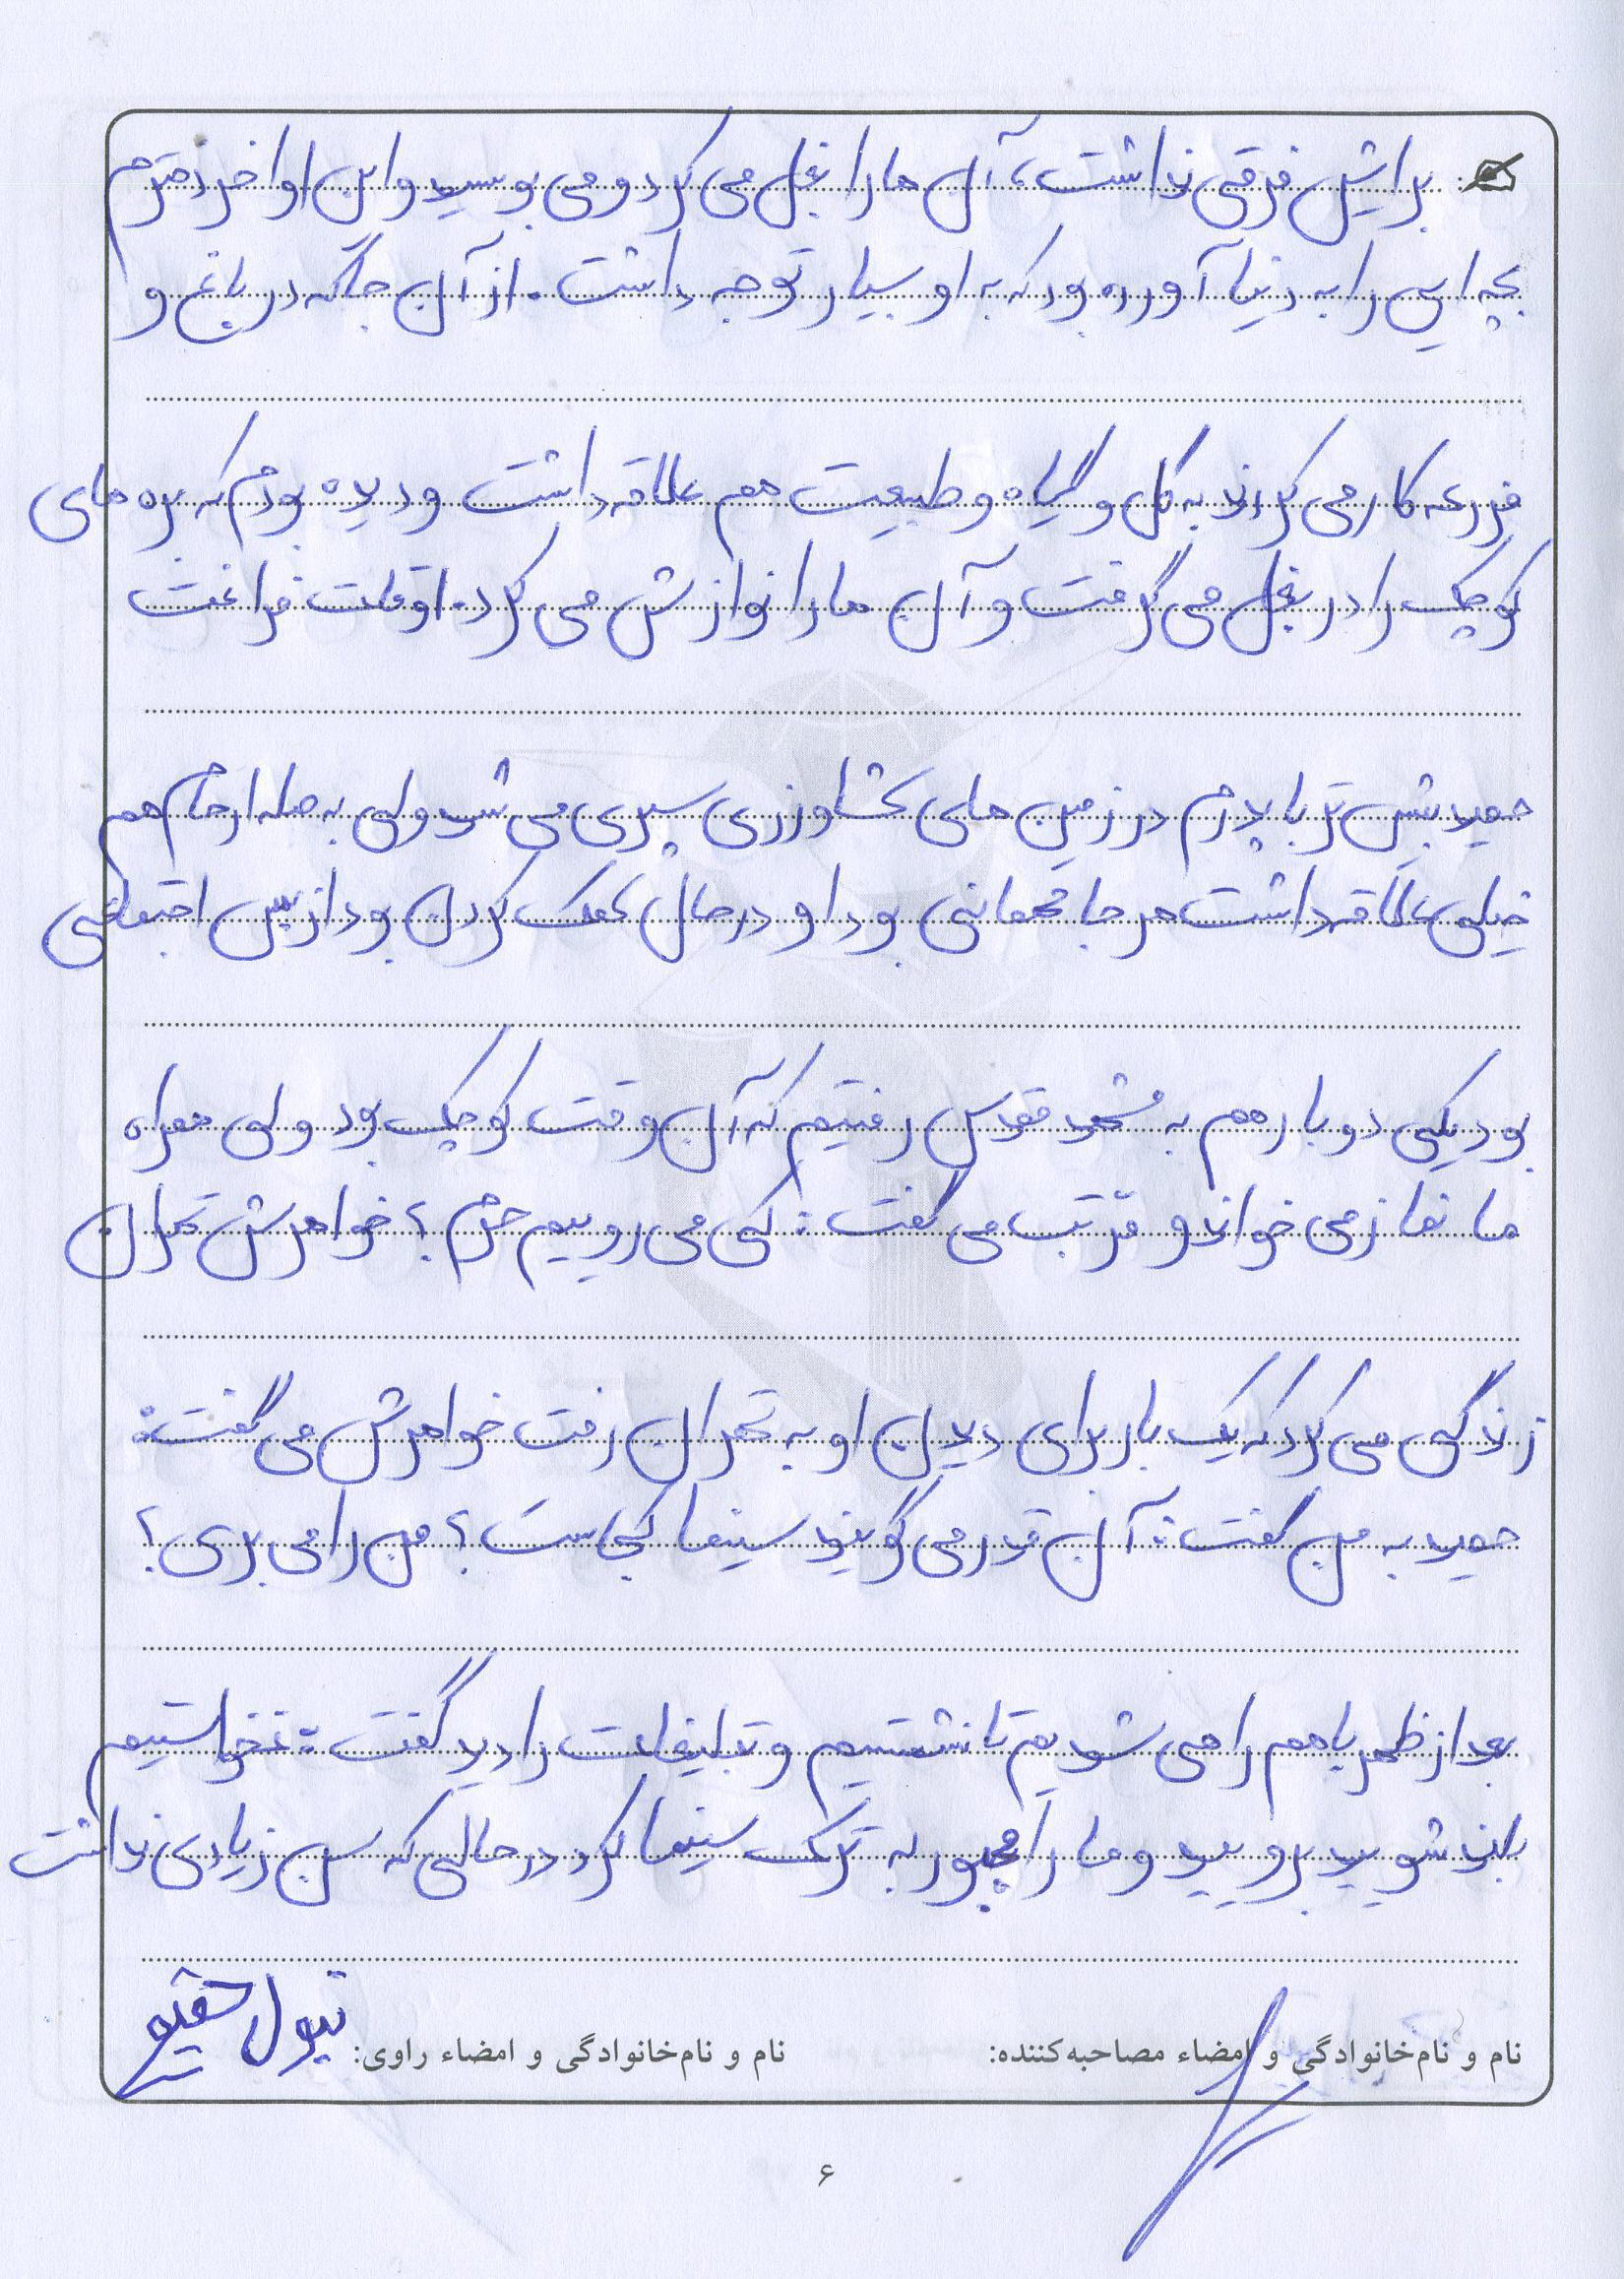 برایش فرقی نداشت، آن ها را بغل می کرد و می بوسید و این اواخر دخترم
بچه ایی را به دنیا آورده بود که به او بسیار توجه داشت. از آن جا که در باغ و
مزرعه کار می کردند به گل و گیاه و طبیعت هم علاقه داشت و دیده بودم که بره های
کوچک را در بغل می گرفت و آن ها را نوازش می کرد. اوقات فراغت
حمید بیش تر با پدرم در زمین های کشاورزی سپری می شد ولی به صله ارحام هم
خیلی علاقه داشت هر جا مهمانی بود او در حال کمک کردن بود از بس اجتماعی
بود یکی دو بار هم به مشهد مقدس رفتیم که آن وقت کوچک بود ولی همراه
ما نماز می خواند و مرتب می گفت: کی می روییم حرم؟ خواهرش تهران
زندگی می کرد که یک بار برای دیدن او به تهران رفت خواهرش می گفت:
حمید به من گفت: آن قدر می گویند سینما کجاست؟ من را می بری؟
بعد از ظهر با هم راهی شدیم تا نشستیم و تبلیغات را دید گفت: نخواستیم
بلند شویید برویید و ما را مجبور به ترک سینما کرد در حالی که سن زیادی نداشت
نام و نام‌خانوادگی و امضاء مصاحبه‌کننده: نام و نام‌خانوادگی و امضاء راوی: بتول
۶